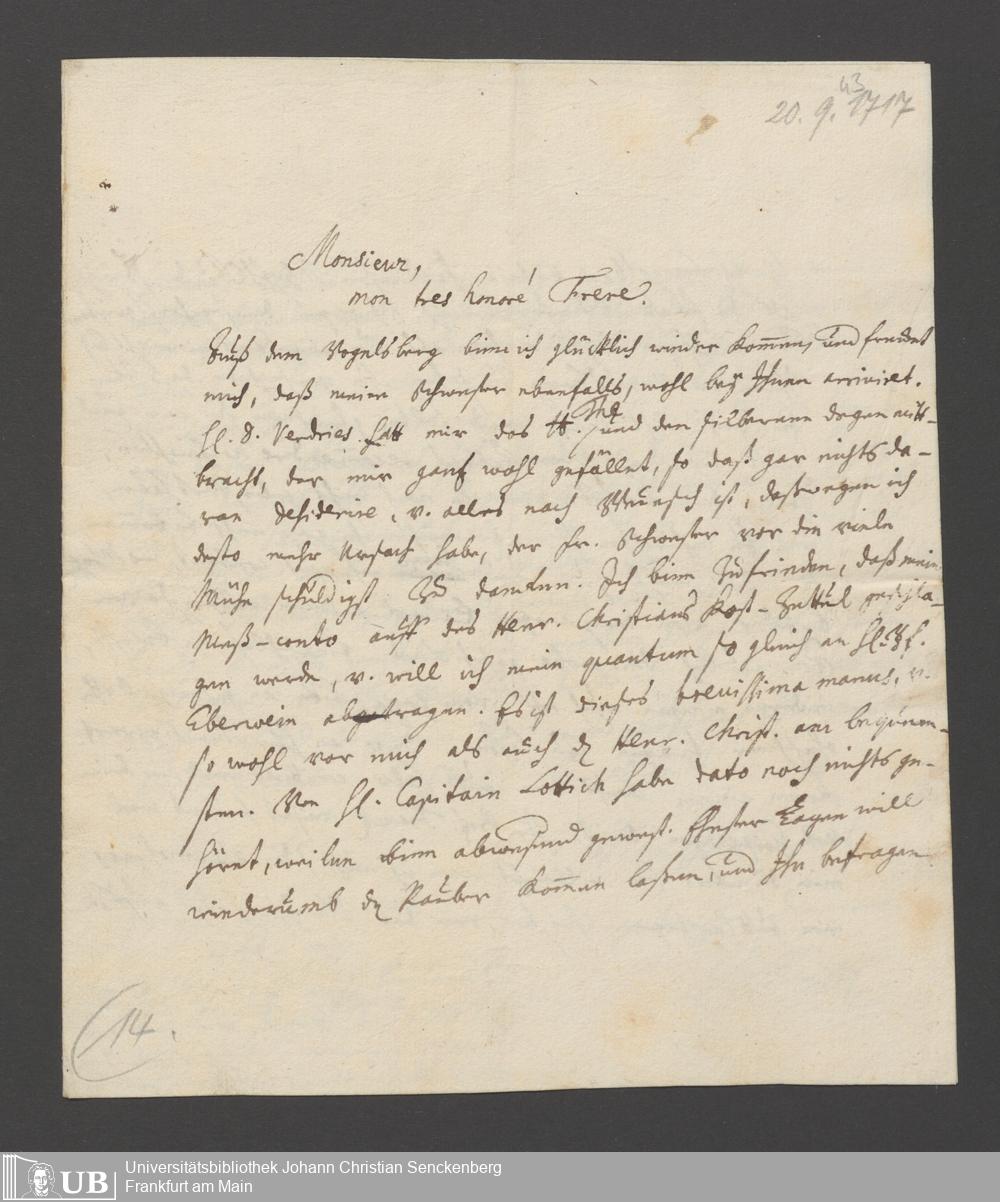 43
20. 9. 1717
Monsieur,
mon tres honoré Frere.
Auß dem Vogelsberg bin ich glücklich wieder kom̄en, und freuet
mich, daß meine Schwester ebenfalls, wohl beÿ Ihnen arriviret.
H. D. Verdries hatt mir das und den silbernen degen mitt-
bracht, der mir gantz wohl gefället, so daß gar nichts da-
ran desiderire, v. alles nach Wunsch ist, deßwegen ich
desto mehr Ursach habe, der Fr. Schwester vor die viele
Mühe schuldigst zu dancken. Ich bin zufrieden, daß mein
Meß-conto auff des Henr. Christians Kost-Zettul geschla-
gen werde, v. will ich mein quantum so gleich an H.
Eberwein abtragen. Es ist dieses brevissima manus, v.
so wohl vor mich als auch Henr. Christ. am bequem-
sten. Von H. Capitain Lottich habe dato noch nichts ge-
höret, weilen bin abwesend gewest. Ehester Tagen will
wiederumb Räuber kom̄en laßen, und Ihn befragen
14.
UB
Universitätsbibliothek Johann Christian Senckenberg
Frankfurt am Main